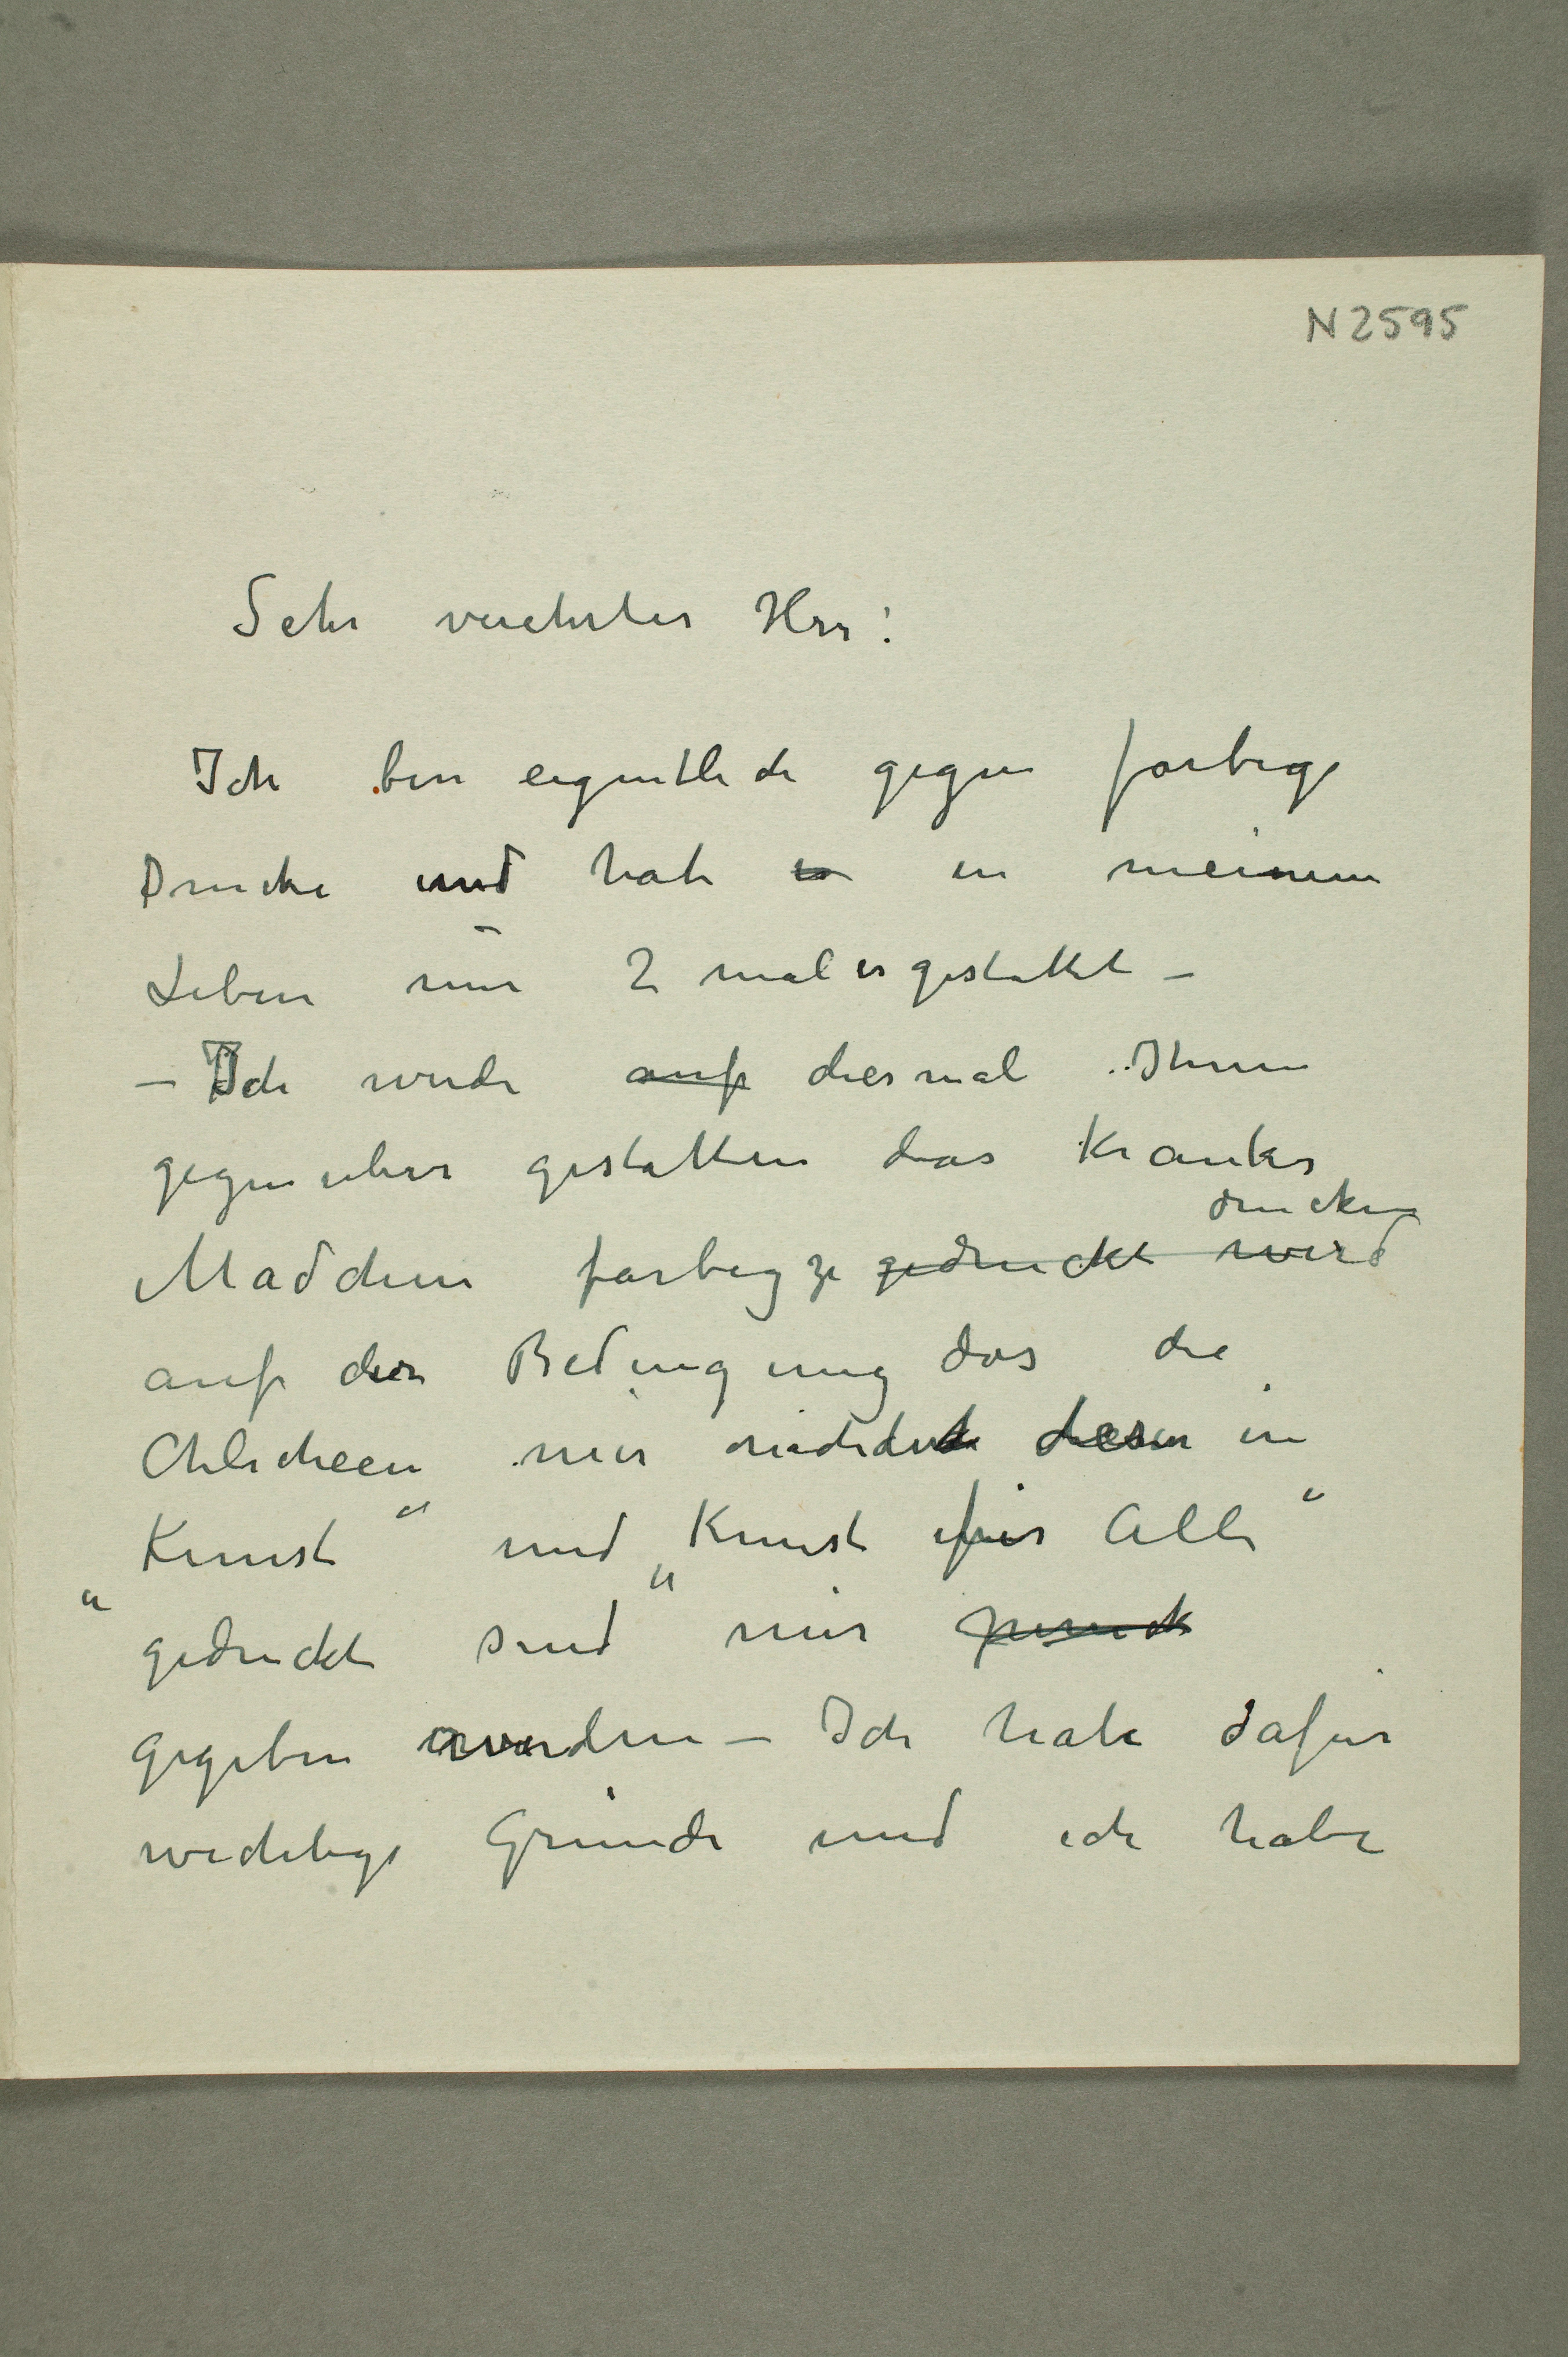 N 2595
Sehr verehrter Herr!
Ich bin eigentlich gegen farbige
Drucke und habe es in meinem
Leben nur 2 mal es gestattet –
– Ich werde auf diesmal Ihnen
gegenuber gestatten das Kranke
drucken
Madchen farbig zu gedruckt wird
auf der Bedingung das die
Chlicheen mir nachdem dieser in
Kunst" und „Kunst für Alle"
„gedruckt sind mir zurück
gegeben werden – Ich habe dafür
wichtige Gründe und ich habe